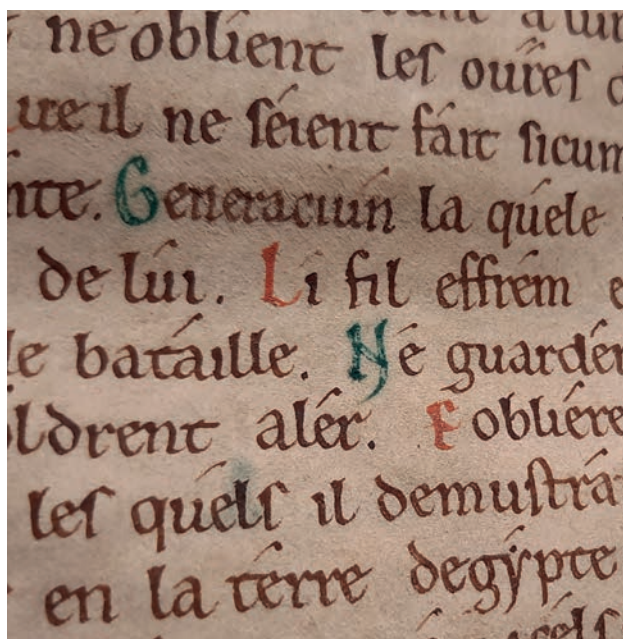 ne óblient les oures
il ne séient fait sicum
Generaciun la quéle
de lúi. Li fil effrém
batáille. Né guardér
aler. E obliére
les quéls il demustrá
en la térre degýpte